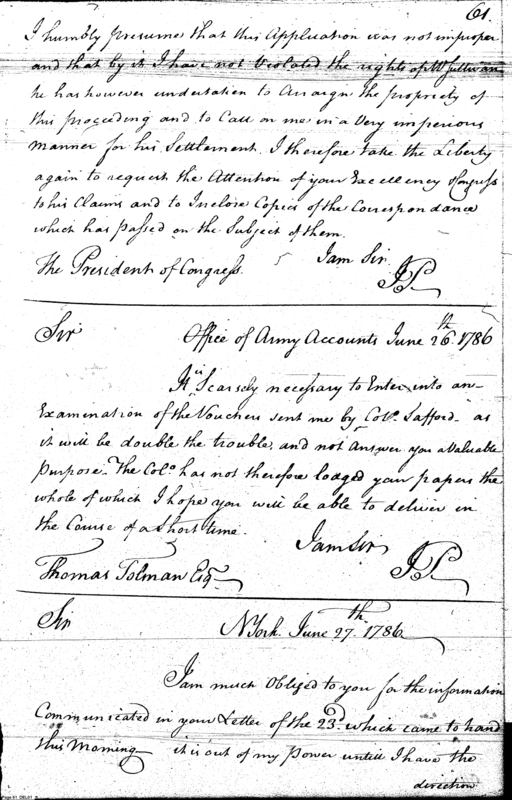 61.
I humbly presume that this Application was not improper
and that by it I have not Violated the rights of Mr Sullivan
he has however undertaken to Arraign the propriety of
this proceeding and to Call on me in a very imperious
manner for his Settlement. I therefore take the Liberty
again to request the Attention of your Excellency & Congress
to his Claims and to Inclose Copies of the Correspondance
which has passed on the Subject of them.
I am Sir
The President of Congress.
JP
Sir Office of Army Accounts June 26th. 1786
It is Scarsely necessary to Enter into an
Examination of the Vouchers sent me by Colo. Safford as
it will be double the trouble, and not answer you a Valuable
Purpose. The Colo. has not therefore lodged your papers the
whole of which I hope you will be able to deliver in
the Course of a short time.
I am Sir
Thomas Tolman Esqr. JP
Sir NYork. June 27th. 1786
I am much Obliged to you for the information
Communicated in your Letter of the 23d. which came to hand
this Morning it is out of my Power untill I have the
direction
Page 61